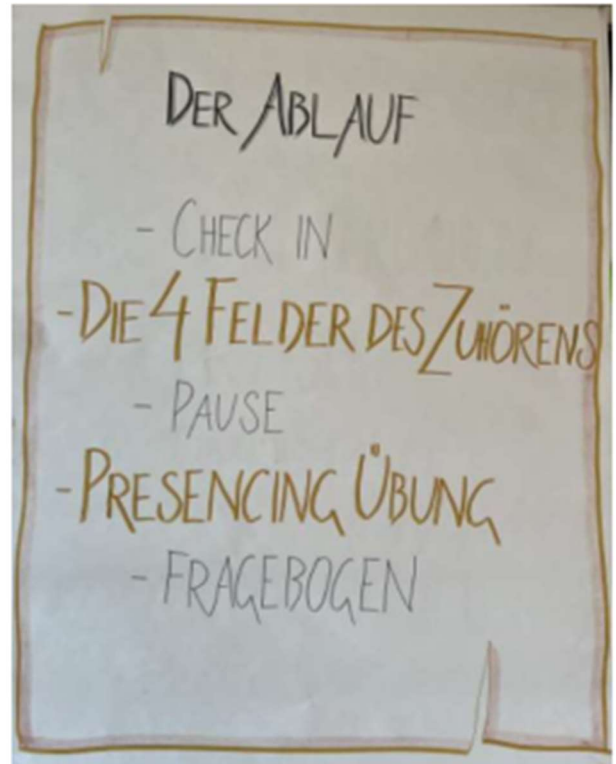 DER ABLAUF
- CHECK IN
- DIE 4 FELDER DES ZUHÖRENS
- PAUSE
- PRESENCING ÜBUNG
- FRAGEBOGEN